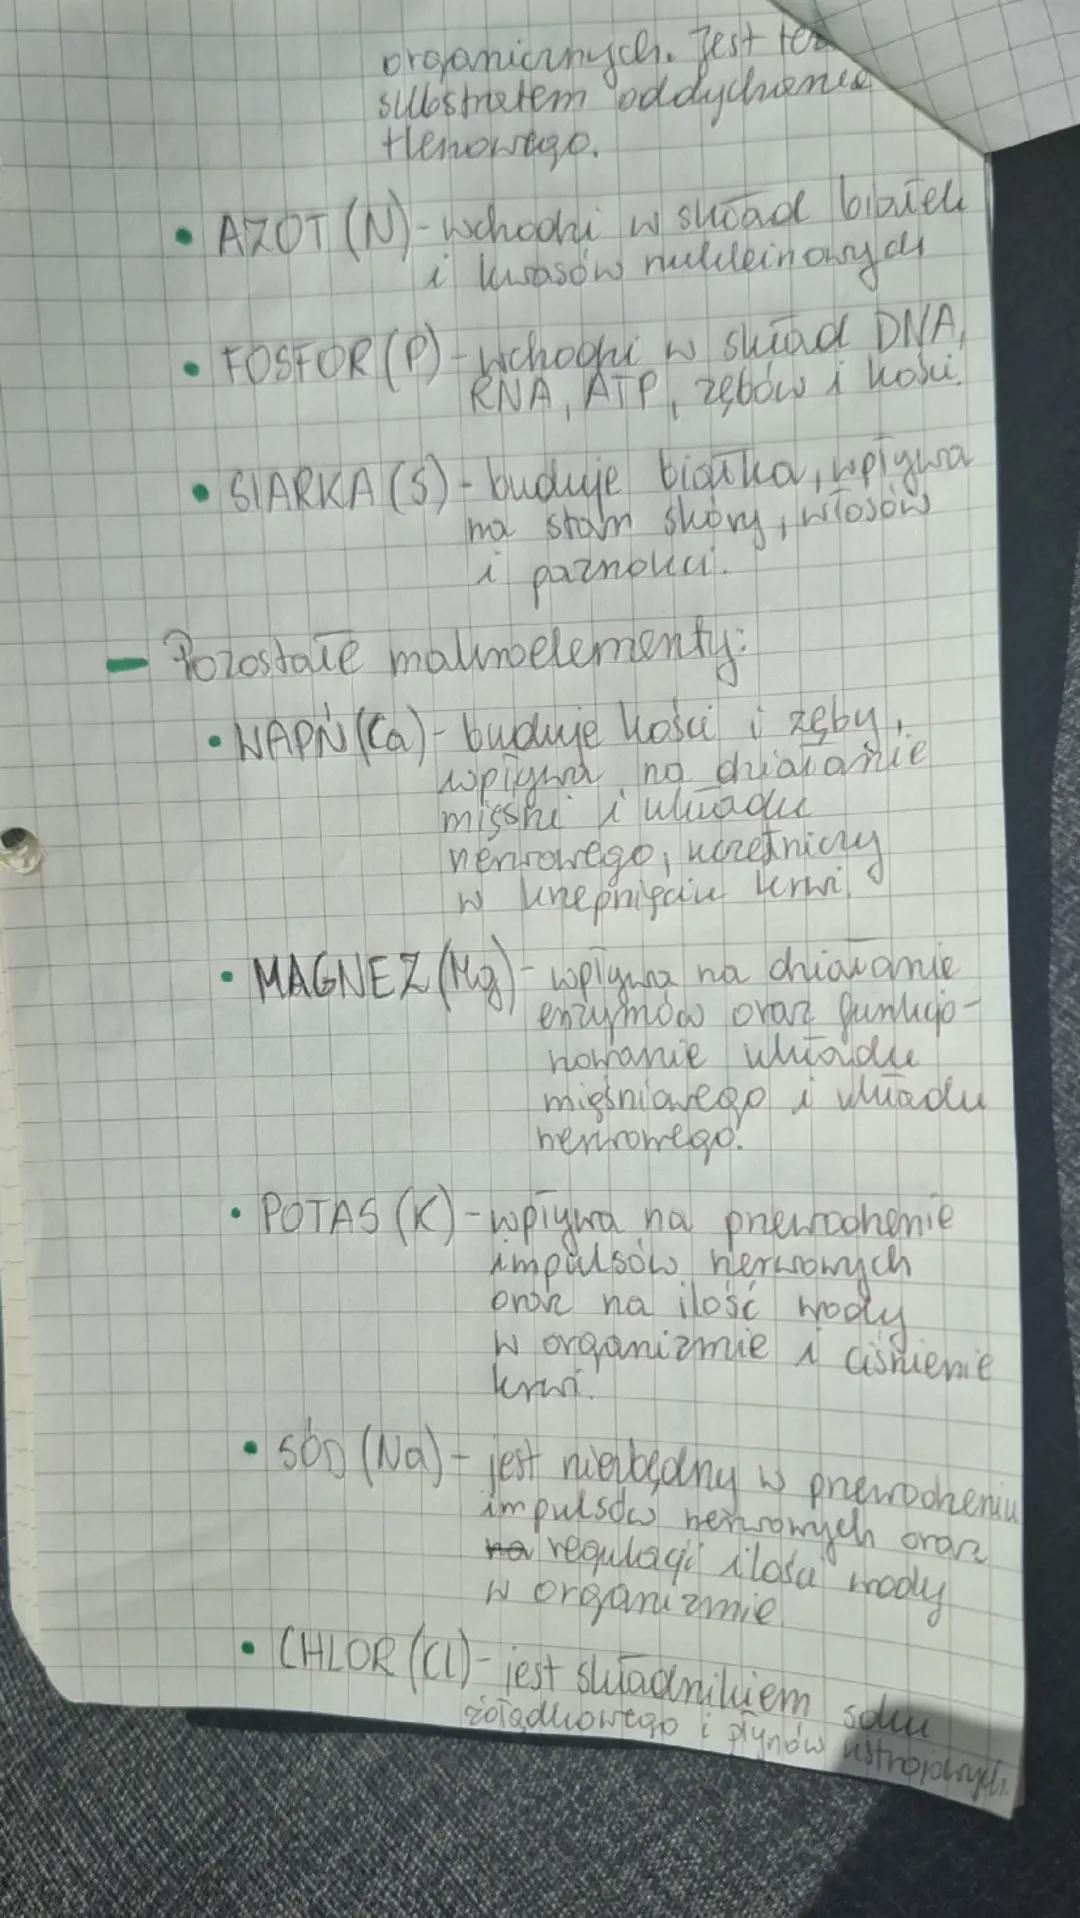 organicznych. Jest też
substratem oddychania
tlenowego.
• AZOT (N) - wchodzi w skład białek
i kwasów nukleinowych
• FOSFOR (P) - wchodzi w skład DNA,
RNA, ATP, zębów i kości.
• SIARKA (S) - buduje białka, wpływa
na stan skóry, włosów
i paznokci.
- Pozostałe makroelementy:
• WAPŃ (Ca) - buduje kości i zęby,
wpływa na działanie
mięśni i układu
nerwowego, uczetniczy
w krzepnięciu krwi.
• MAGNEZ (Mg) - wpływa na działanie
enzymów oraz funkcjo-
nowanie układu
mięśniowego i układu
nerwowego.
• POTAS (K) - wpływa na przewodzenie
impulsów nerwowych
oraz na ilość wody
w organizmie i ciśnienie
krwi.
• SÓD (Na) - jest niezbędny w przewodzeniu
impulsów nerwowych oraz
na regulacji ilości wody
w organizmie
• CHLOR (Cl) - jest składnikiem soku
żołądkowego i płynów ustrojowych.